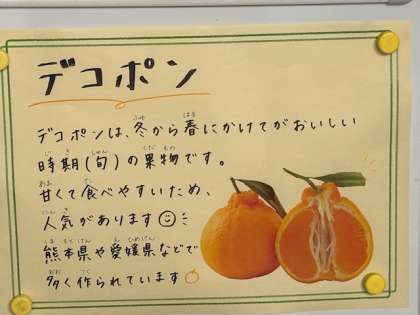 デコポン
デコポンは、冬から春にかけてがおいしい
時期(旬)の果物です。
甘くて食べやすいため、
人気があります
熊本県や愛媛県などで
多く作られています